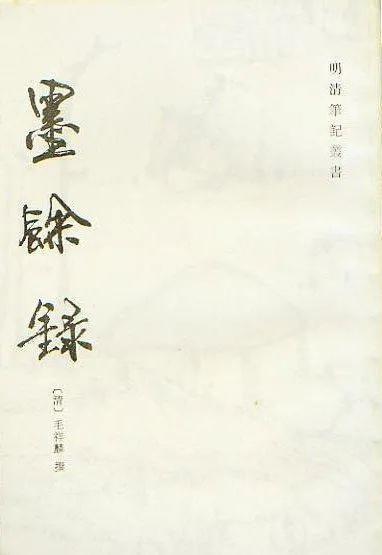 明清筆記叢書
墨餘录
〔清〕毛祥麟 撰